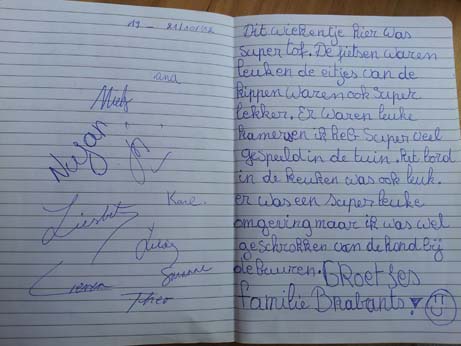 Niels
Nujan
Liesbet
Karel
Lukas
Susanne
Theo
Dit wiekentje hier was
super tof. De fietsen waren
leuk en de eitjes van de
kippen waren ook super
lekker. Er waren leuke
kamers en ik heb super veel
gespeeld in de tuin. Het bord
in de keuken was ook leuk.
er was een super leuke
omgeving maar ik was wel
geschrokken van de hond bij
de buren. GRoetjes
familie Brabants!